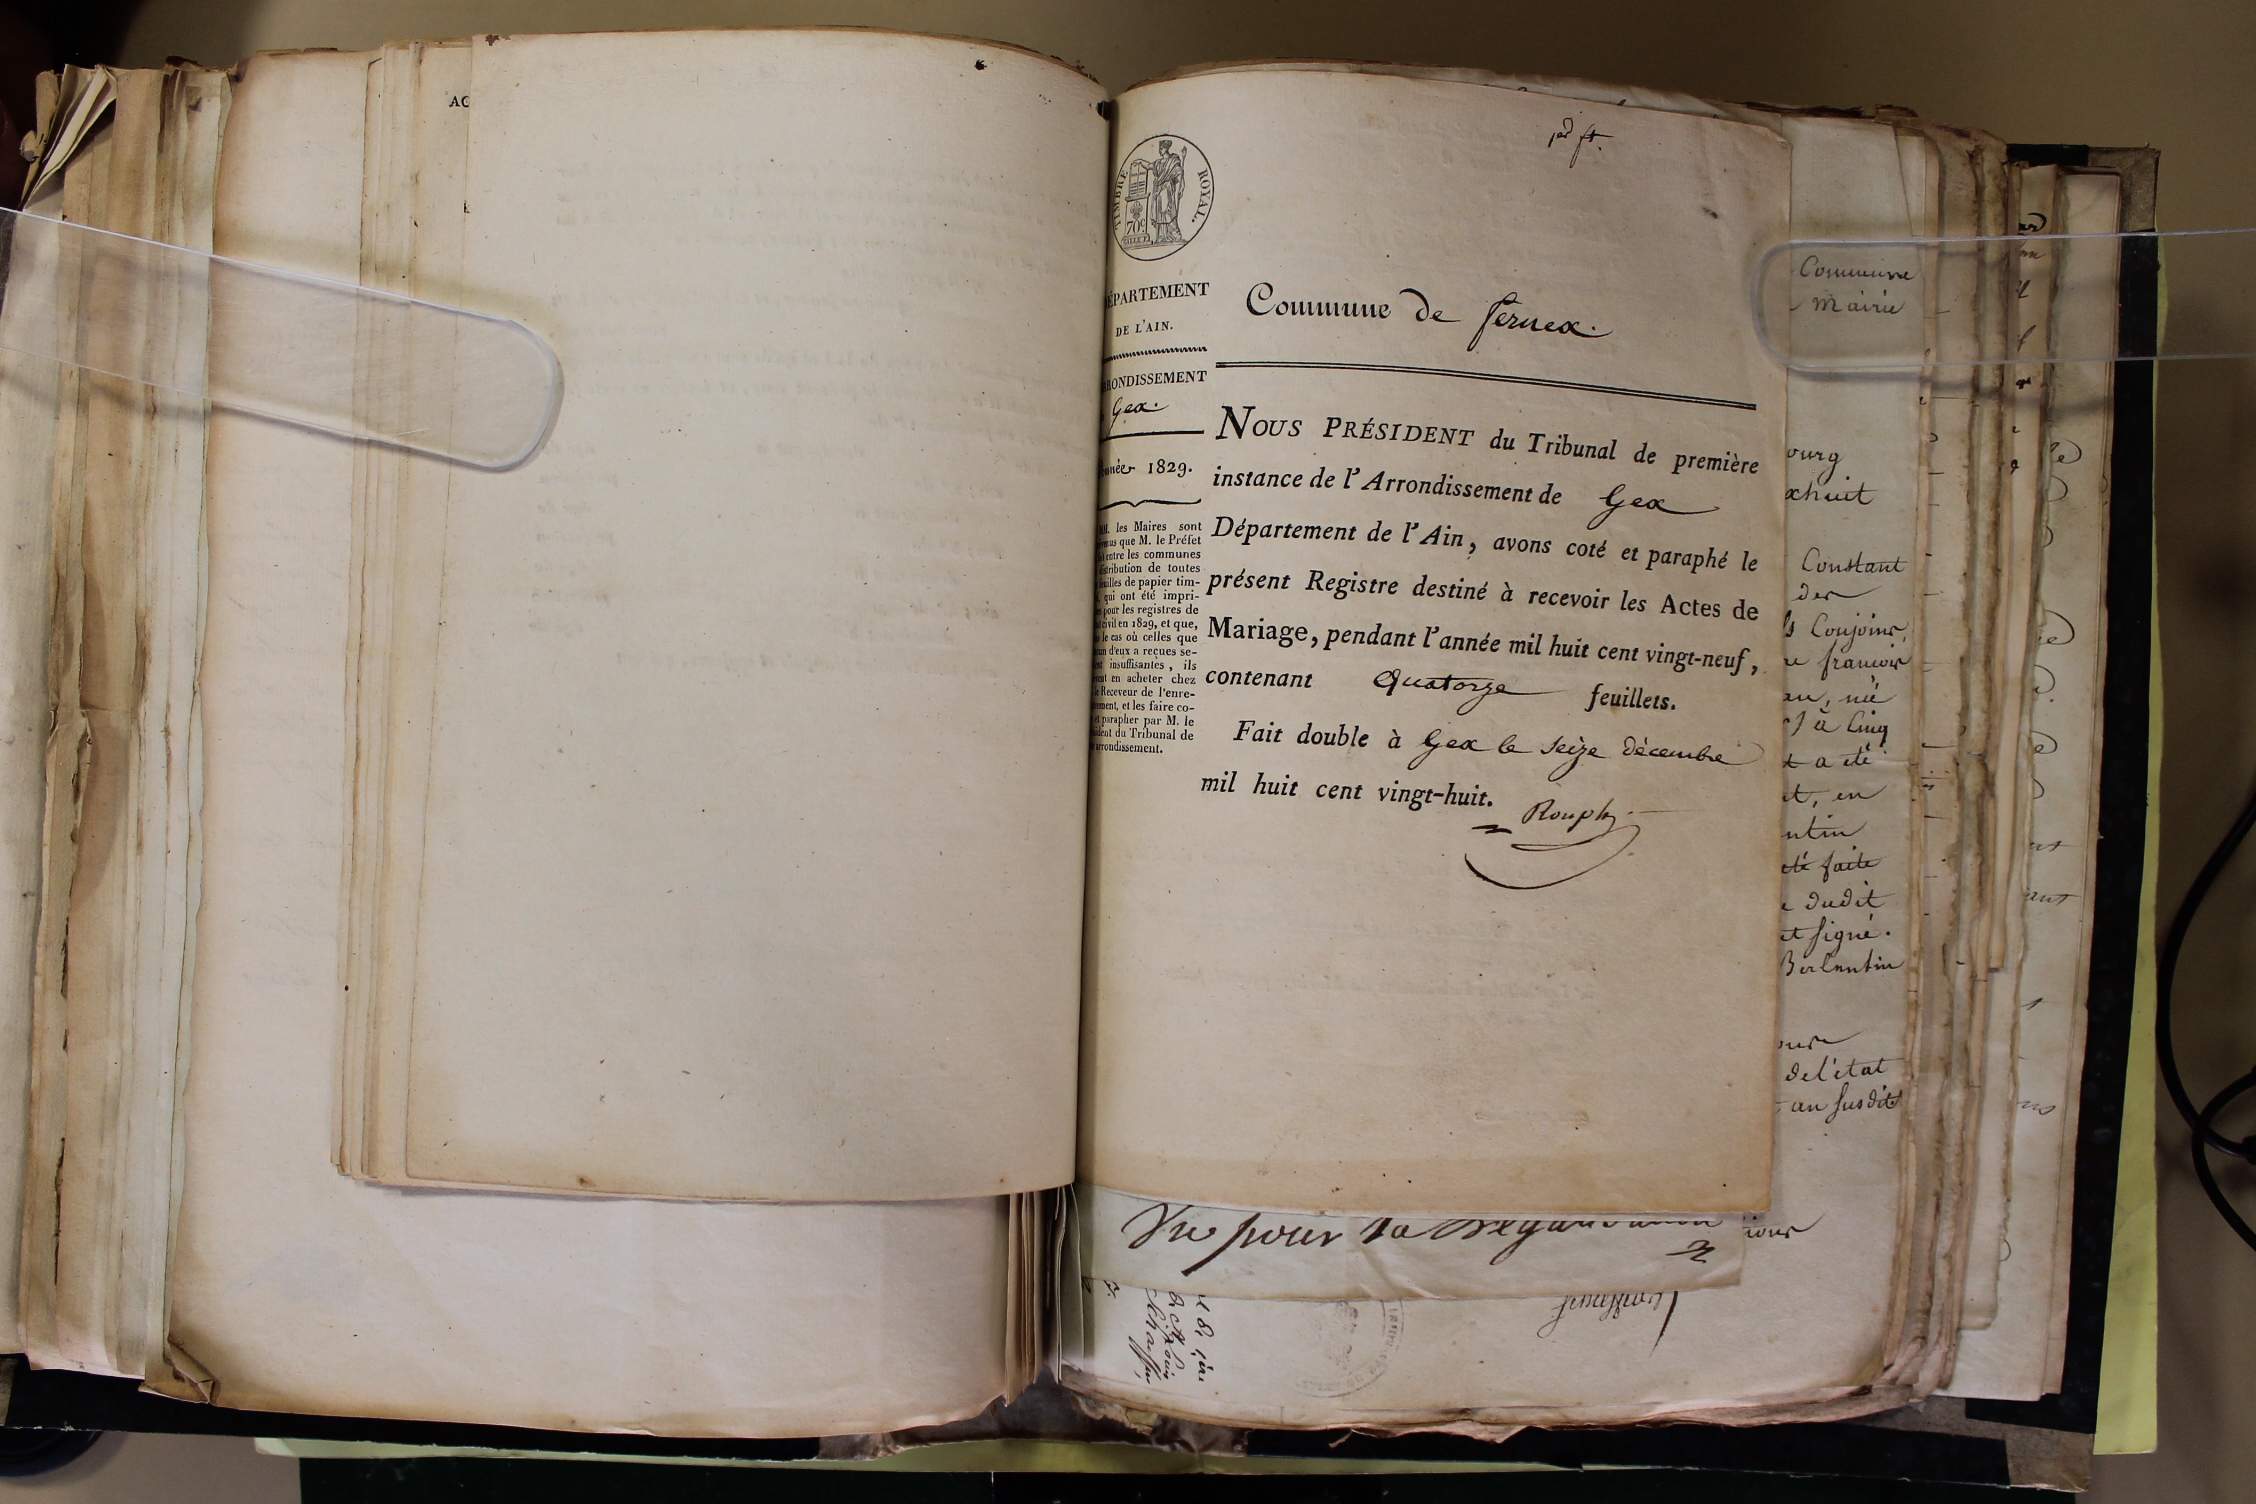 AC
1er ft.
TIMBRE ROYAL.
70c
DÉPARTEMENT
DE L'AIN.
ARRONDISSEMENT
Gex.
Année 1829.
MM. les Maires sont
que M. le Préfet
entre les communes
distribution de toutes
feuilles de papier tim-
qui ont été impri-
pour les registres de
civil en 1829, et que,
le cas où celles que
d'eux a reçues se-
insuffisantes, ils
en acheter chez
le Receveur de l'enre-
et les faire co-
et parapher par M. le
Président du Tribunal de
arrondissement.
Commune de fernex.
NOUS PRÉSIDENT du Tribunal de première
instance de l'Arrondissement de Gex
Département de l'Ain, avons coté et paraphé le
présent Registre destiné à recevoir les Actes de
Mariage, pendant l'année mil huit cent vingt-neuf,
contenant Quatorze feuillets.
Fait double à Gex le seize décembre
mil huit cent vingt-huit.
Rouph
Commune
Mairie
ourg
xhuit
Constant
der
Conjoins,
francois
an, née
à Cinq
a été
et, en
ntin
été faite
dudit
et signé.
Berlentin
de l'état
an susdit
Vu pour la